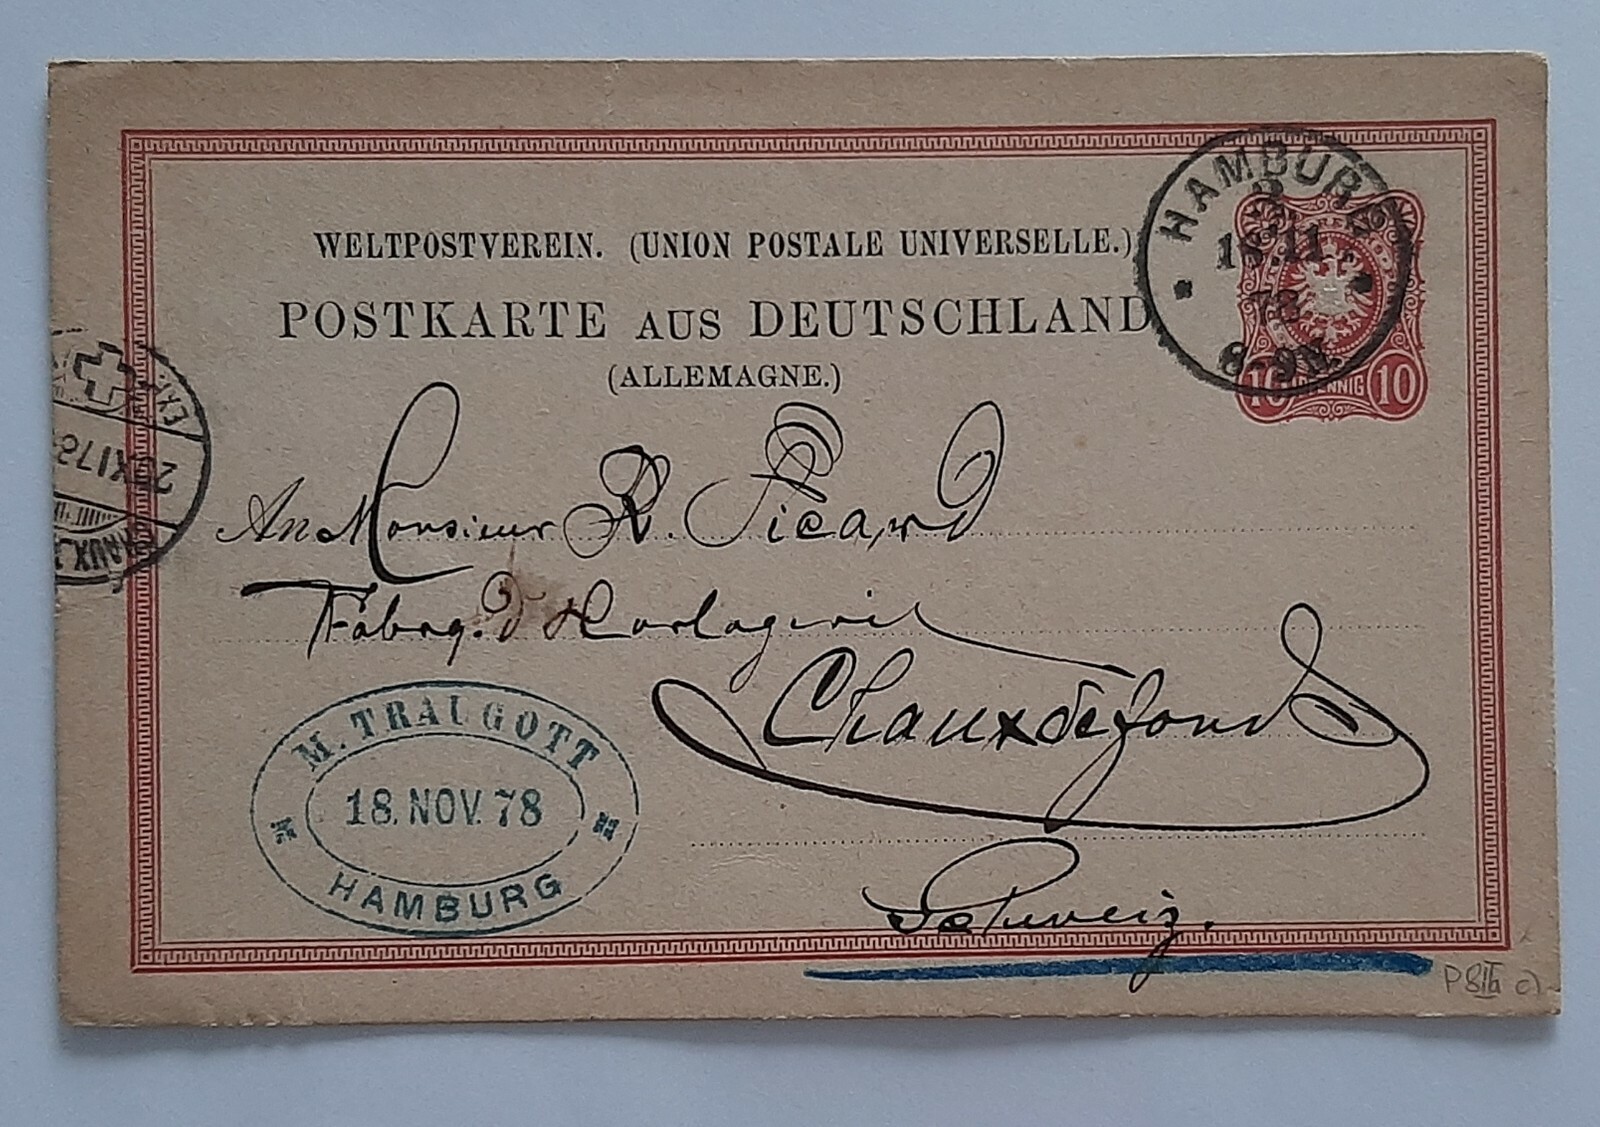 WELTPOSTVEREIN. (UNION POSTALE UNIVERSELLE.)
POSTKARTE AUS DEUTSCHLAND
(ALLEMAGNE.)
HAMBURG
18.11.
78
8-9N.
10 PFENNIG 10
20 XI 78
An Monsieur R. Picard
Fabrq. d'Horlogerie
Chauxdefonds
Schweiz.
M. TRAUGOTT
18. NOV. 78
HAMBURG